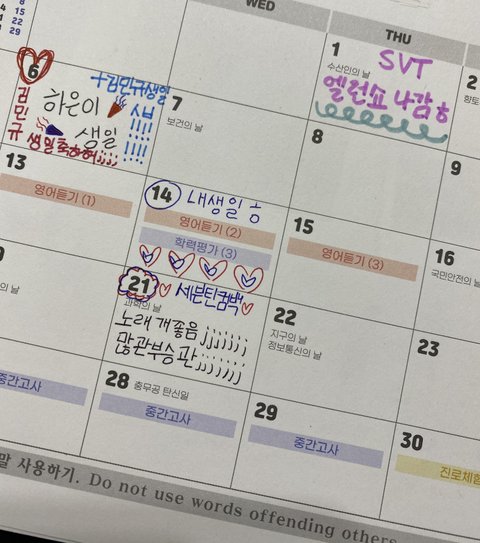 8
14 15
21 22
28 29
WED
THU
1 SVT
수산인의 날
엘런쇼 나감ㅎ
2
6
+김민규생일
김민규
하은이
생일
생일축하해
ㅅㅂ
!!!!
!!!!
7
보건의 날
8
9
13
영어듣기 (1)
14 내생일 ㅎ
영어듣기 (2)
학력평가 (3)
15
영어듣기 (3)
16
국민안전의 날
21 세븐틴컴백
과학의 날
노래 개좋음 jjjjjjj
많관부승관;;;;;;;
22
지구의 날
정보통신의 날
23
의 날
중간고사
28 충무공 탄신일
중간고사
29
중간고사
30
진로체험
말 사용하기. Do not use words offending others